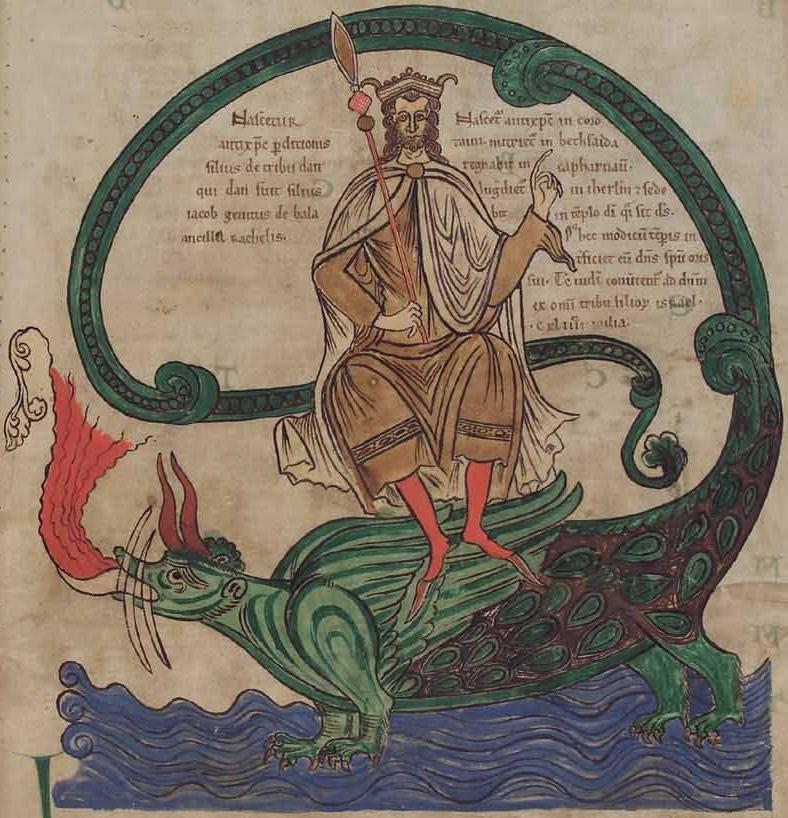 Nascetur
antixp̄c p̄ditionis
filius de tribu dan
qui dan fuit filius
iacob genitus de bala
ancilla rachelis.
Nascet᷑ antixp̄c in coro
zaim. nutriet᷑ in bethsaida
regnabit in capharnaū.
lugdiet᷑ in iherlm̄ ⁊ sede
bit in tēplo dī q̄ sit ds̄.
P᷒ hec modicū tēpis in
tficiet eū dn̄s spū oris
sui. Tc̄ iudī conūtent᷑ ad dnm̄
ex om̄i tribu filioꝝ israel.
cxliiii milia.